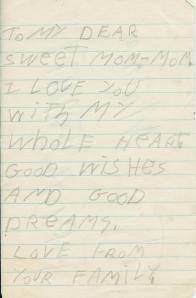 To MY DEAR
sweet MOM-MOM.
I LOVE YOU
WITH MY
WHOLE HEART
GOOD WISHES
AND GOOD
DREAMS.
LOVE FROM
YOUR FAMILY.